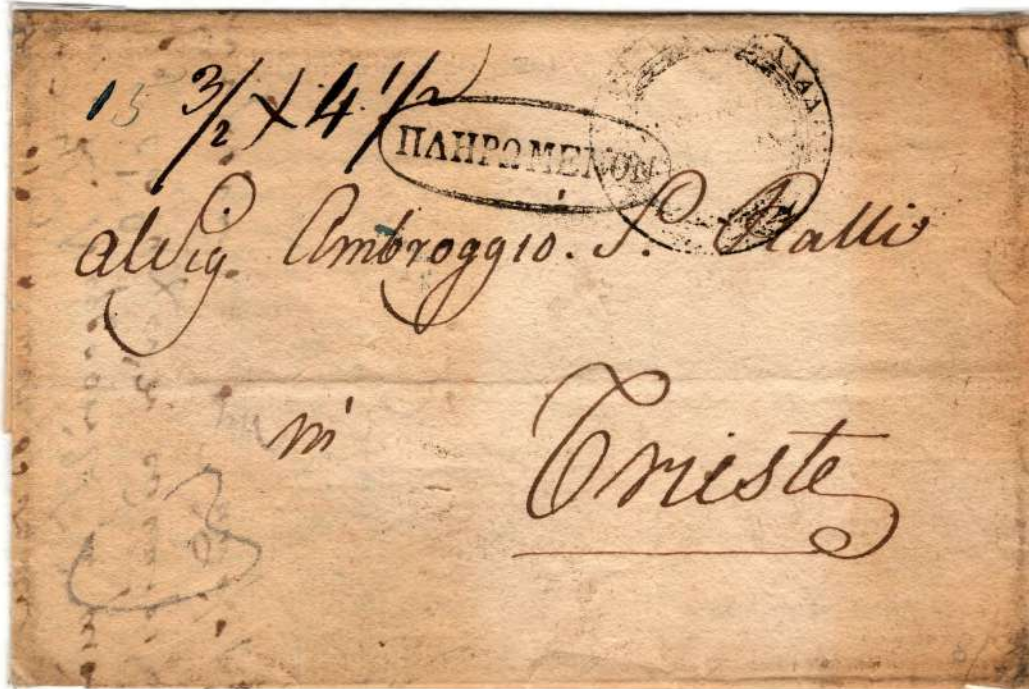 15 3/2 X 4 1/2
ΠΛΗΡΩΜΕΝΟΝ
Al Sig Ambroggio. S. Ralli
in
Trieste